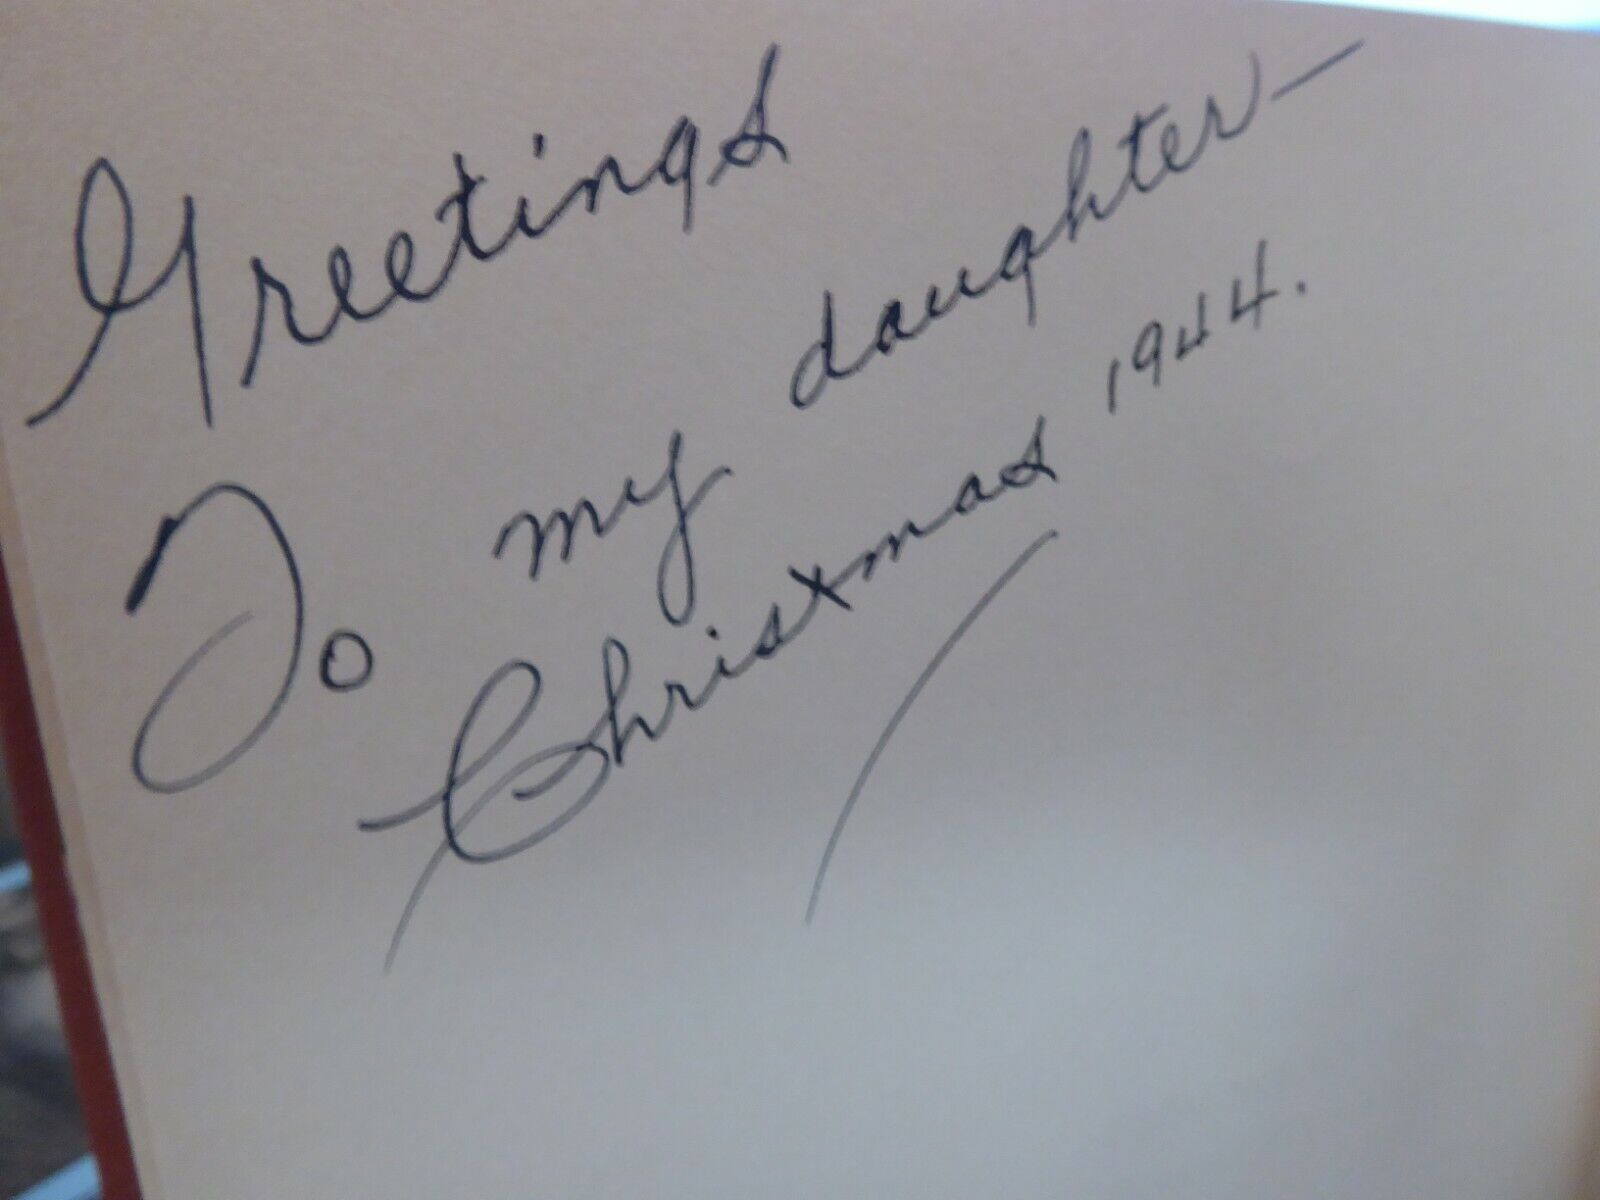 Greetings
To my daughter—
Christmas 1944.